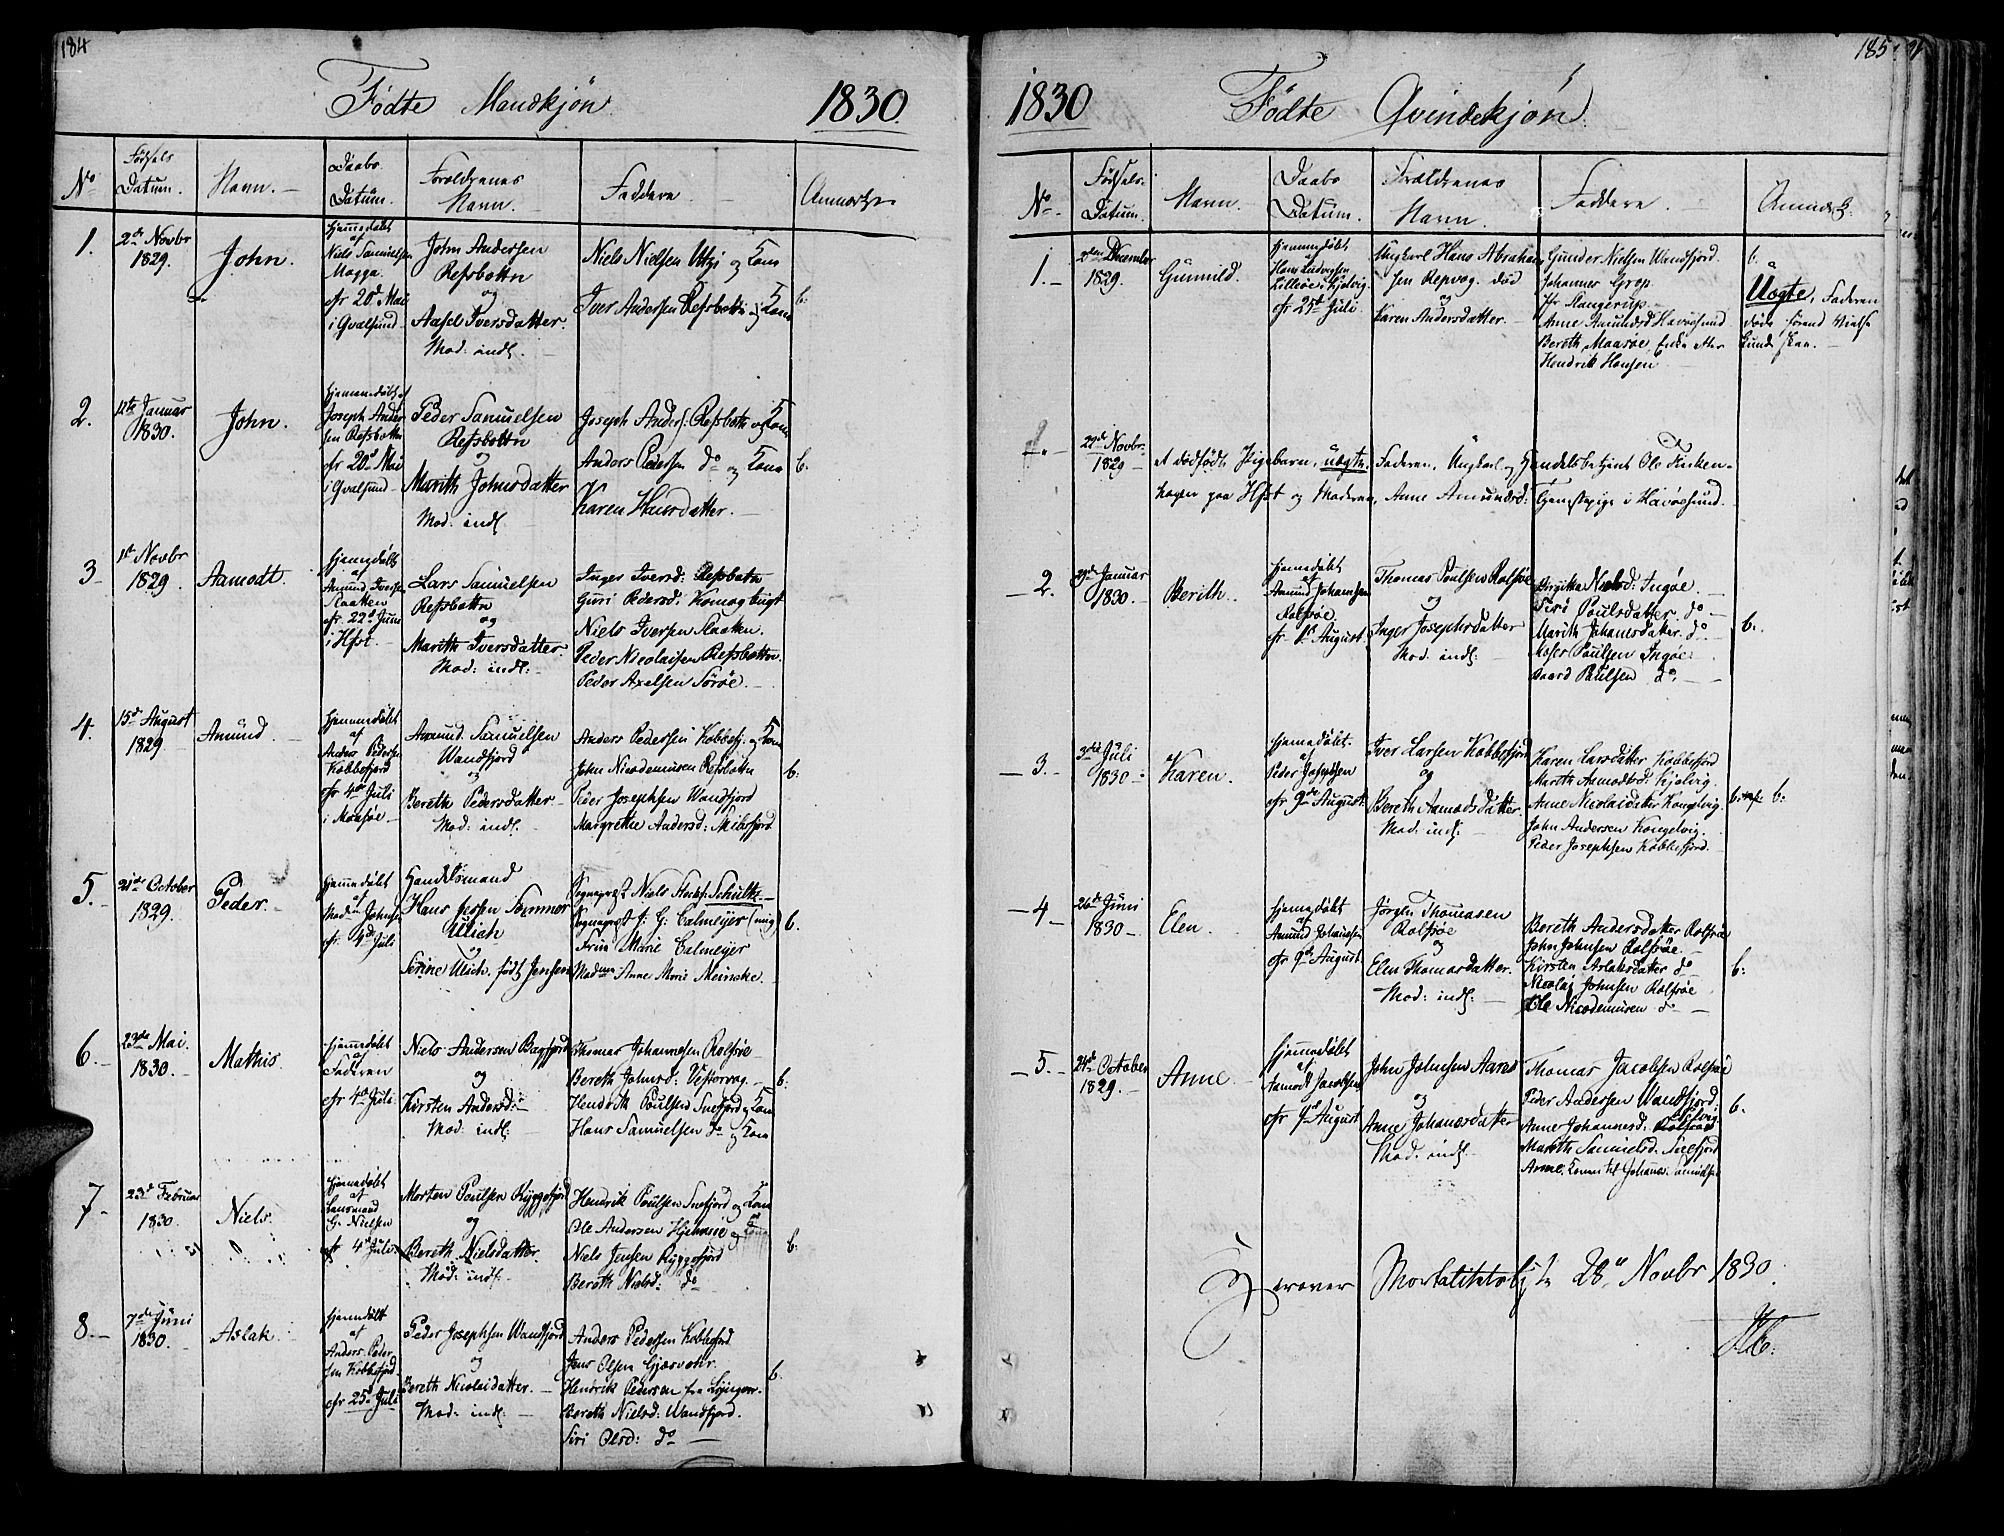 184
Fødte Mandkjøn 1830.
No
Fødsels Datum.
Navn.
Daabs Datum.
Forældrenes Navn.
Faddere
1.
2den Novbr 1829.
John.
Hjemmedøbt
af
Niels Samuelsen
cfr 20d Mai
i Qvalsund
John Andersen
Refsbottn
og
Aasel Iversdatter.
Mod: indl.
Niels Nielsen og Kone
Iver Andersen Refsbottn og Kone
b:
2.
12te Januar 1830.
John.
Hjemmedøbt af
Joseph Ander-
sen Refsbottn
cfr 20d Mai
i Qvalsund
Peder Samuelsen
Refsbottn
og
Marith Johnsdatter
Mod: indl.
Joseph Anders: Refsbottn og Kone
Anders Pedersen do og Kone
Karen Hansdatter.
b:
3
1ste Novbr 1829
Aamodt.
Hjemmedøbt
af
Amund Iversen
Klaatten
cfr 22d Juni
i Hfst
Lars Samuelsen
Refsbottn
og
Marith Iversdatter.
Mod: indl:
Inger Iversd: Refsbottn
Guri Pedersd: Komagbugt
Niels Iversen Klaatten.
Peder Nicolaisen Refsbottn.
Peder Axelsen Sørøe.
4.
15d August 1829
Amund
Hjemmedøbt
af
Anders Pedersen
Kobbefjord
cfr 4de Juli
i Maasøe
Amund Samuelsen
Wandfjord
og
Bereth Pedersdatter
Mod: indl.
Anders Pedersen Kobbefj: og Kone
John Nicodemusen Refsbottn
Peder Josephsen Wandfjord
Margrethe Andersd: Mibefjord
b:
5.
21de October 1829.
Peder.
Hjemmedøbt
af
Madm Johnsen
cfr 4d Juli
Handelsmand
Hans Jessen Sommer
Ulich
og
Serine Ulich, født Jensen
Sognepræst Niels Schultz
Sognepræst J. G. Calmeyer (mig)
Frue Marie Calmeyer
Madme Anne Marie Meinske.
b:
6.
23de Mai. 1830.
Mathis.
Hjemmedøbt
af
Faderen
cfr 4de Juli
Niels Andersen Bagfjord
og
Kirsten Andersd:
Mod: indl:
Thomas Johannesen Rolfsøe
Bereth Johnsd: Vestervog.
Hendrik Poulsen Snefjord og Kone
Hans Samuelsen do og Kone
b:
7
23d Februar 1830.
Niels.
Hjemmedøbt
af
Lensmand
G. Nielsen
cfr 4d Juli
Morten Poulsen Ryggefjord
og
Bereth Nielsdatter.
Mod: indl:
Hendrik Poulsen Snefjord og Kone
Ole Andersen Hjelmsøe og Kone
Niels Jensen Ryggefjord
Bereth Nielsd: do
b:
8
7de Juni 1830.
Aslak.
Hjemmedøbt
af
Anders Peder-
sen Kobbefjord
cfr 25d Juli
Peder Josephsen Wandfjord
og
Bereth Nicolaidatter.
Mod: indl:
Anders Pedersen Kobbefjord
Jens Olsen Gjæsvær.
Hendrik Pedersen fra Lyngen.
Bereth Nielsd: Wandfjord.
Siri Olsd: do
b:
185
1830 Fødte Qvindekjøn.
No
Fødsels Datum.
Navn.
Daabs Datum.
Forældrenes Navn.
Faddere.
1.
December 1829.
Gunnild.
Hjemmedøbt
af
cfr 25d Juli
Ungkarl Hans Abraham-
sen Repvog. død
og
Karen Andersdatter.
Gunder Nielsen Wandfjord.
Johannes Grep.
Jfr Stangerup.
Anne Amundsd Havøesund
Bereth Maasøe, Enke efter
Hendrik Hansen
b.
Uægte, Faderen
døde førend Vielse
kunde skee.
22d Novbr. 1829
et dødfødt Pigebarn, uægte. Faderen, Ungkarl og Handelsbetjent Ole Finken-
hagen paa Hfst og Moderen, Anne Amundsd: Tjenestepige i Havøesund.
2.
Januar 1830.
Berith.
Hjemmedøbt
af
Amund Johannesen
Rolfsøe.
cfr August
Thomas Poulsen Rolfsøe
og
Inger Josephsdatter
Mod: indl:
Birgitha Nielsd: Ingøe.
Siri Poulsdatter. do
Marith Johansdatter. do
Moses Poulsen Ingøe.
Baard Poulsen do.
b.
3.
3die Juli 1830
Karen.
Hjemmedøbt.
af
Peder Josephsen
cfr 9de August
Iver Larsen Kobbefjord
og
Bereth Aamodsdatter.
Mod: indl:
Karen Larsdatter Kobbefjord
Marith Aamodsd: Gjølvig.
Anne Nicolaidatter Kongelvig
John Andersen Kongelvig.
Peder Josephsen Kobbefjord.
b:
4
26d Juni 1830
Elen.
Hjemmedøbt
af
Amund Johannsen
cfr 9de August
Jørgen Thomasen
Rolfsøe
og
Elen Thomasdatter.
Mod: indl:
Bereth Andersdatter Rolfsøe
John Johnsen Rolfsøe.
Kirsten Aslaksdatter do
Nicolai Johnsen Rolfsøe
Ole Nicodemusen do
b:
5.
24d October 1829.
Anne
Hjemmedøbt
af
Aamodt Jacobsen
cfr 9d August
John Johnsen Aarøe
og
Anne Johansdatter
Mod: indl.
Thomas Jacobsen Rolfsøe
Peder Andersen Wandfjord.
Anne Johannesd.
Mareth Samuelsd: Snefjord
Anne, Konen til Johanes Amundsen
b.
Herover 28d Novbr 1830.